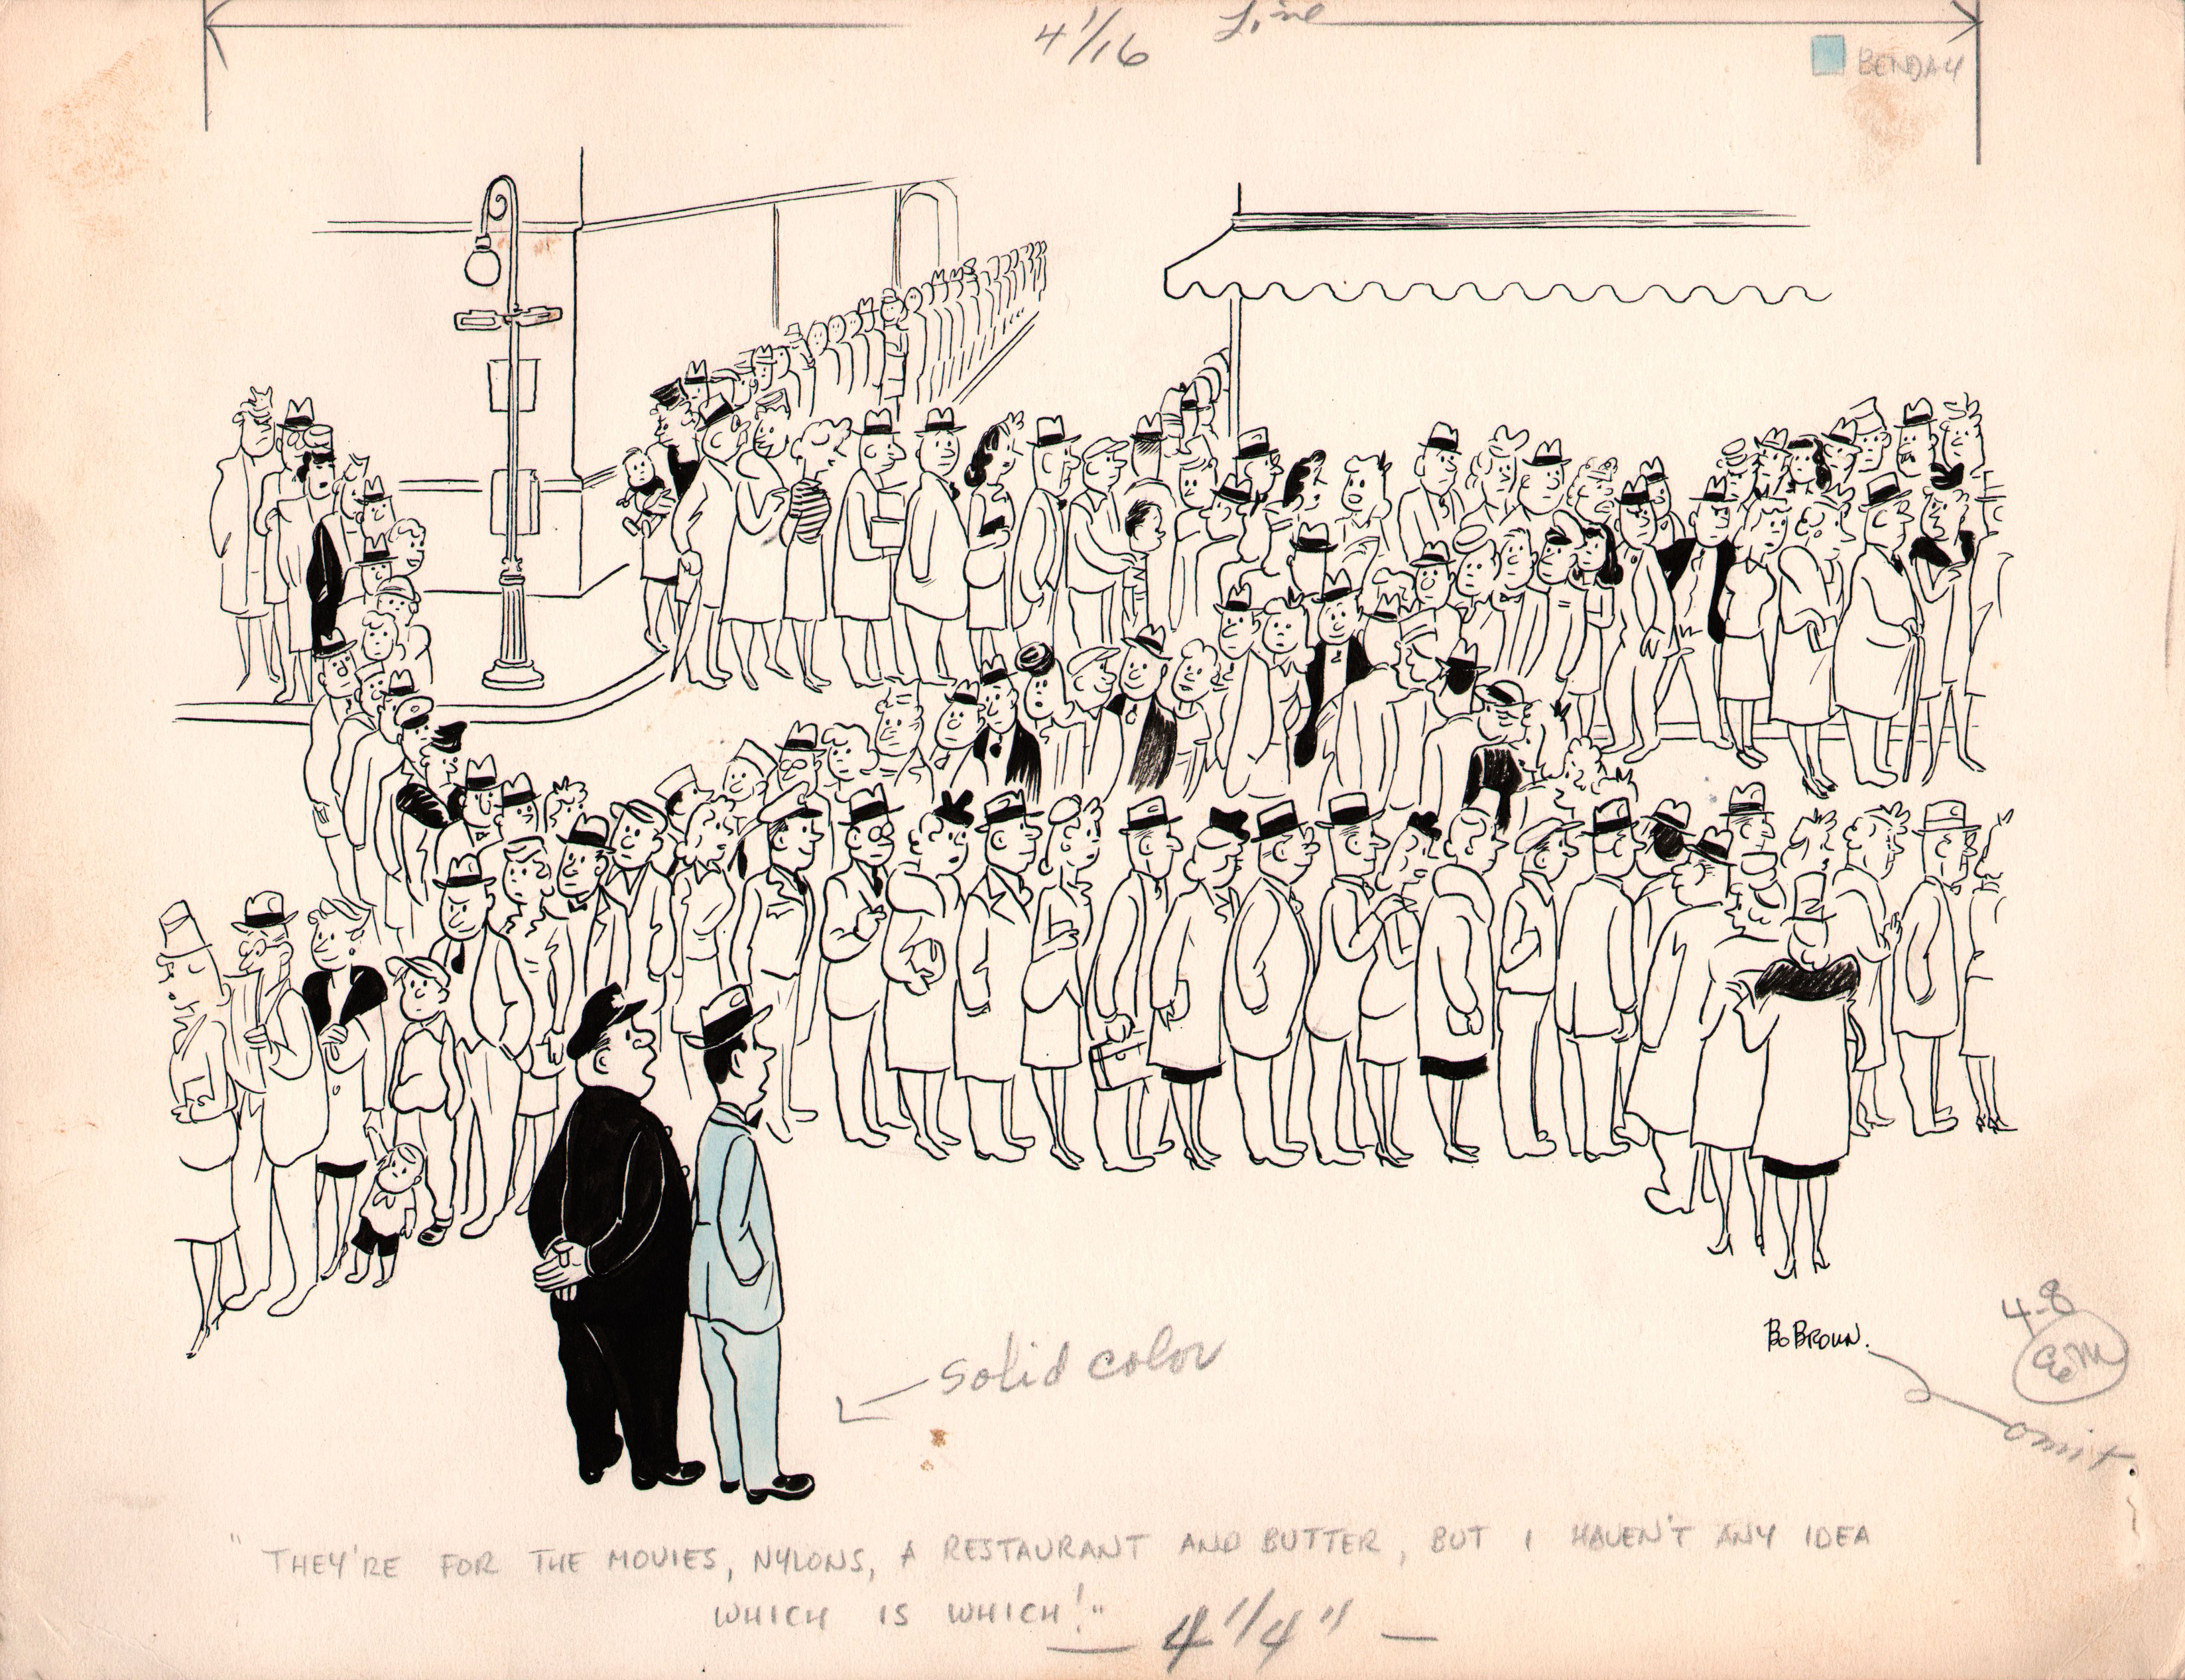 4 1/16 Line
BENDAY
BO BROWN.
4-8
EM
omit
solid color
"THEY'RE FOR THE MOVIES, NYLONS, A RESTAURANT AND BUTTER, BUT I HAVEN'T ANY IDEA
WHICH IS WHICH!"
4 1/4"